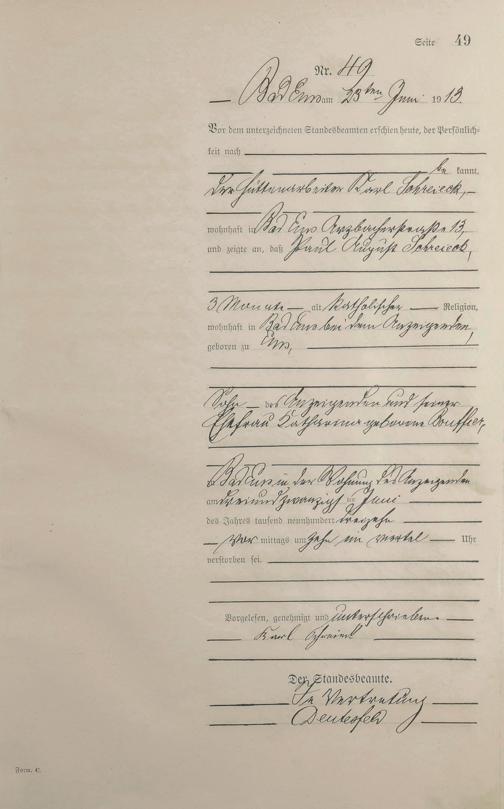 Seite 49
Nr. 49
Bad Ems am 23ten Juni 1913.
Vor dem unterzeichneten Standesbeamten erschien heute, der Persönlich-
keit nach
be kannt,
der Hüttenarbeiter Karl Schreieck,
wohnhaft in Bad Ems Arzbacherstraße 13,
und zeigte an, daß Paul August Schreieck,
3 Monate alt, katholischer Religion,
wohnhaft in Bad Ems bei dem Anzeigenden,
geboren zu Ems,
Sohn des Anzeigenden und seiner
Ehefrau Katharina geborene Bouffier,
zu Bad Ems in der Wohnung des Anzeigenden
am dreiundzwanzigsten Juni
des Jahres tausend neunhundert dreizehn
Vor mittags um zehn ein viertel Uhr
verstorben sei.
Vorgelesen, genehmigt und unterschrieben.
Karl Schreieck
Der Standesbeamte.
In Vertretung
Form. C.